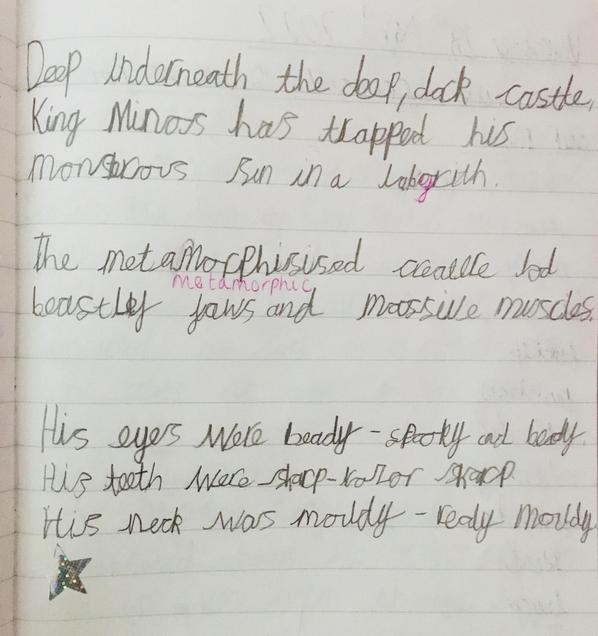 Deep underneath the deep, dark castle,
King Minos has trapped his
monstrous sun in a labyrith.
The metamorphisised creature had
metamorphic
beastley jaws and massive muscles.
His eyes were beady - spooky and beady
His teeth were - sharp - razor sharp
His neck was mouldy - really mouldy